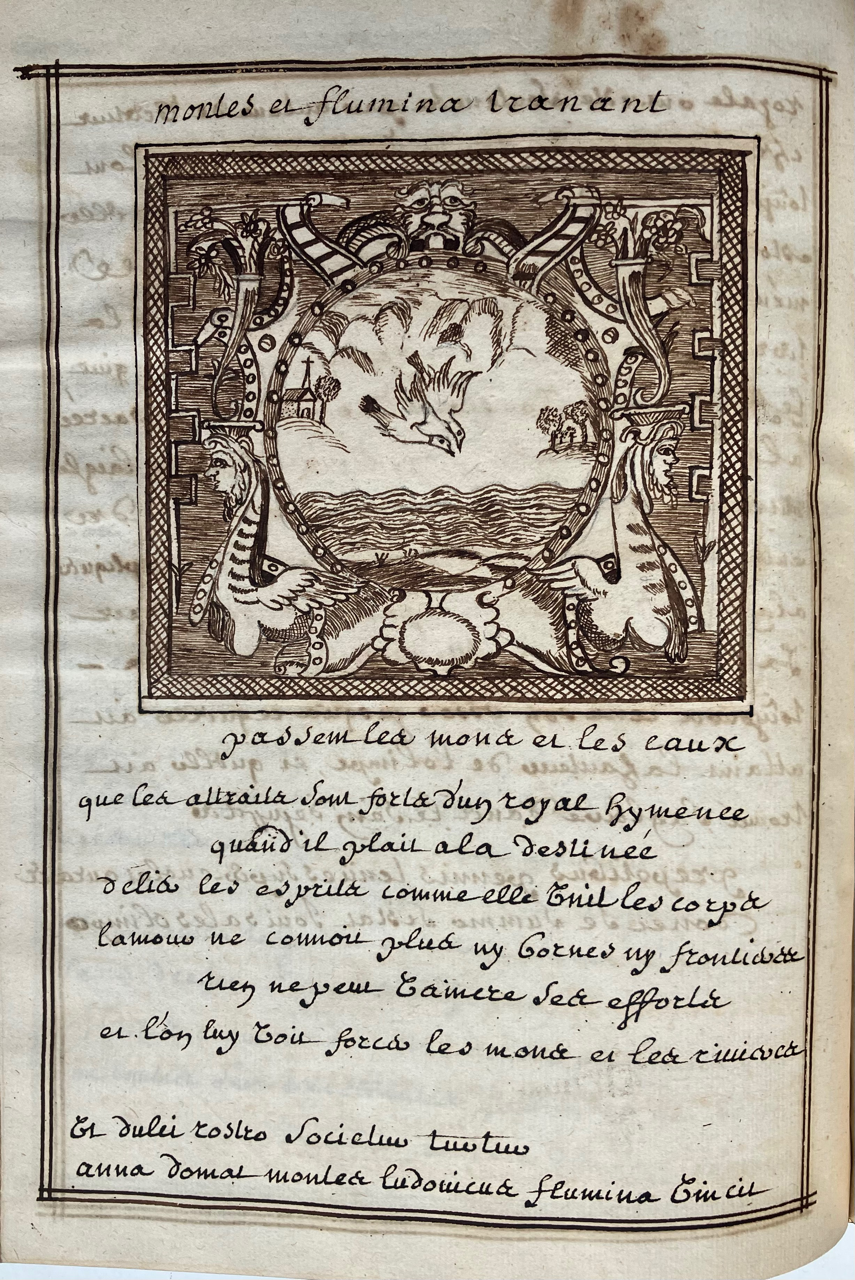 montes et flumina tranant
passent les monts et les eaux
que les attraits sont forts d'un royal hymenee
quand il plait a la destinée
délier les esprits comme elle unit les corps
lamour ne connoit plus ny bornes ny frontieres
rien ne peut vaincre ses efforts
et l'on luy voit forcer les monts et les rivieres
Et dulci rostro societur turtur
anna domat montes ludovicus flumina vincit